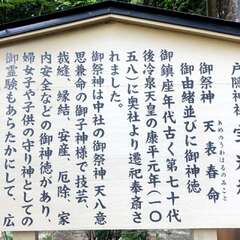 戸隠神社宝光
御祭神 天表春命
あめのうわはるのみこと
御由緒並びに御神徳
御鎮座年代古く第七十代
後冷泉天皇の康平元年(一〇
五八)に奥社より遷祀奉斎さ
れました。
御祭神は中社の御祭神 天八意
思兼命の御子神様で技芸、
裁縫、縁結、安産、厄除、家
内安全などの御神徳があり、
婦女子や子供の守り神としての
御霊験もあらたかにして、広